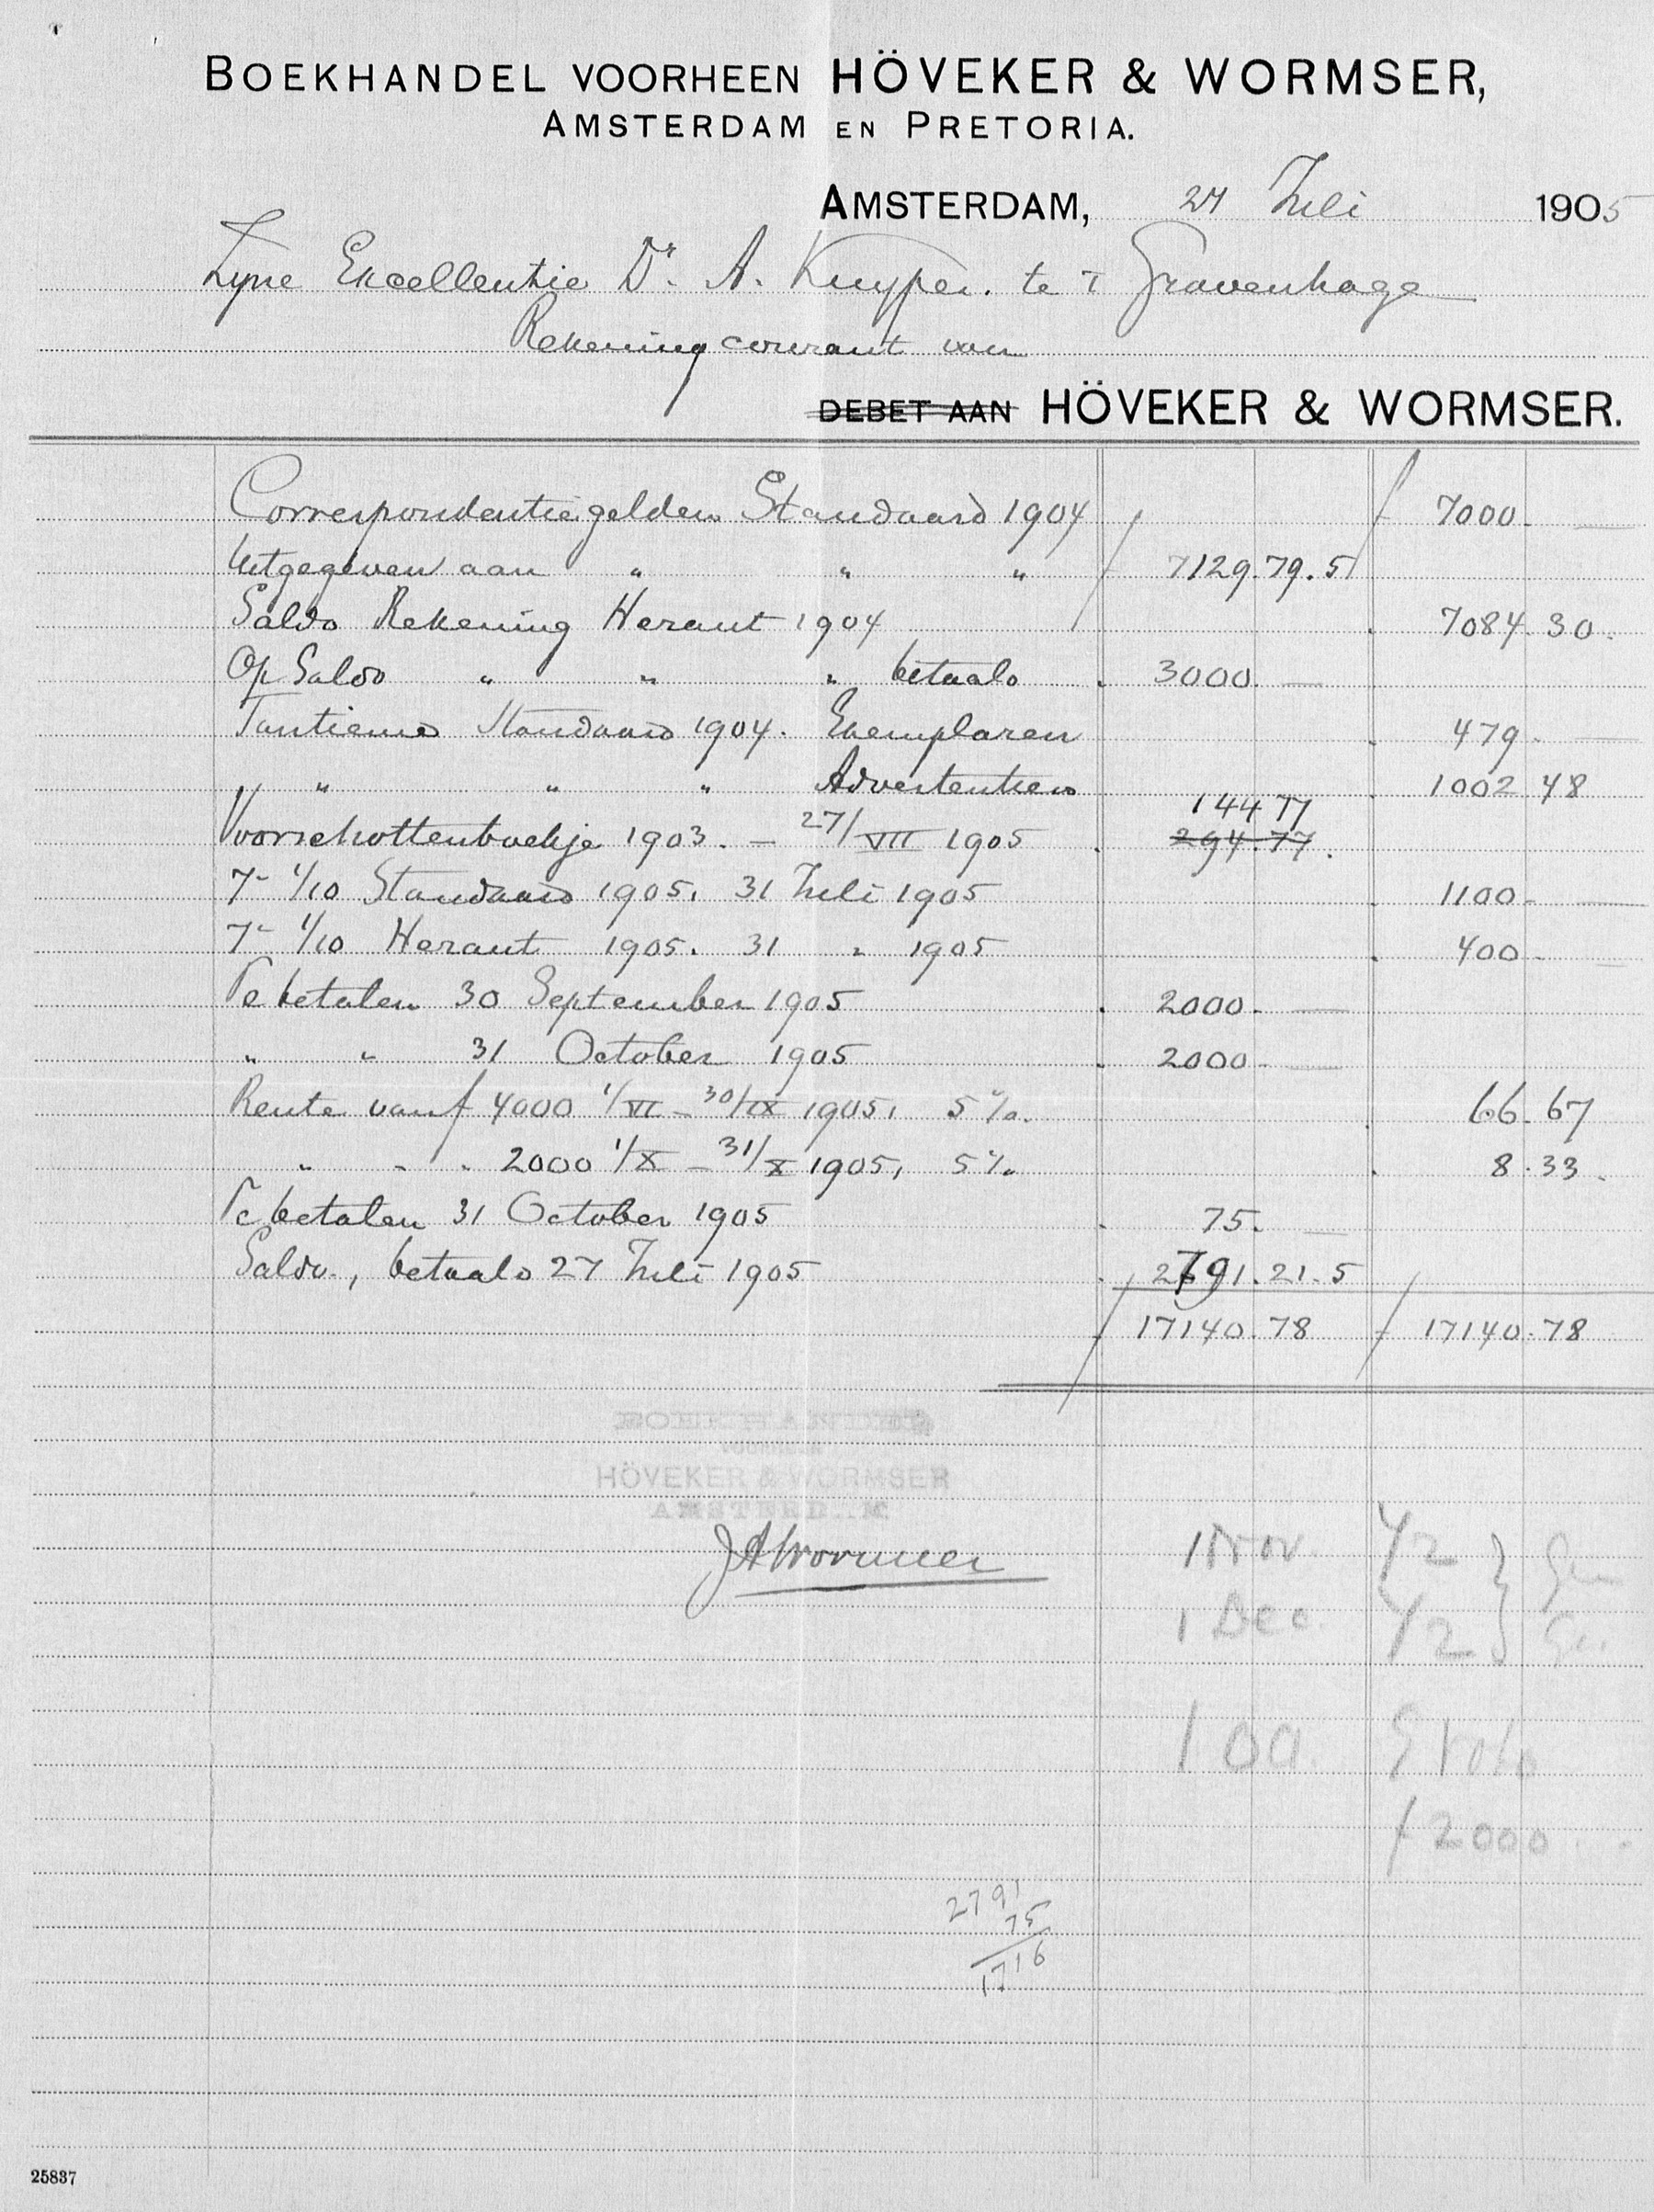 BOEKHANDEL VOORHEEN HÖVEKER & WORMSER,
AMSTERDAM EN PRETORIA.
AMSTERDAM, 27 Juli 1905
Zyne Excellentie Dr. A. Kuyper. te 's Gravenhage
Rekening courant van
DEBET AAN HÖVEKER & WORMSER.
Correspondentiegelden Standaard 1904 f 7000.—
Uitgegeven aan " " " f 7129.79.5
Saldo Rekening Heraut 1904 . 7084.30.
Op Saldo " " " betaald . 3000.—
Tantieme Standaard 1904. Exemplaren . 479.—
" " " " Advertentien . 1002.48
144 77
Voorschottenboekje 1903. — 27/VII 1905 . 294.77.
7- 1/10 Standaard 1905. 31 Juli 1905 . 1100.—
7- 1/10 Heraut 1905. 31 " 1905 . 400.—
Te betalen 30 September 1905 . 2000.—
" " 31 October 1905 . 2000.—
Rente van f 4000 1/VI – 30/IX 1905, 5%. . 66.67
" " " 2000 1/X – 31/X 1905, 5% . 8.33.
Te betalen 31 October 1905 . 75.—
Saldo, betaald 27 Juli 1905 . 2791.21.5
f 17140.78 f 17140.78
HÖVEKER & WORMSER
JAWormser
1 Nov. 1/2
1 Dec. 1/2
f 2000
2791
75
1716
25837